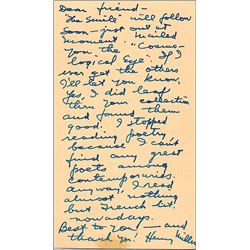 Dear friend—
"The Smile" will follow
soon — just out at
moment. Mailed
you the "Cosmo-
logical Eye". If I
ever get the others
I'll let you know.
Yes, I did leaf
thru your collection
and found them
good. I stopped
reading poetry
because I can't
find any great
poets among
contemporaries.
Anyway, I read
almost nothing
but French lit.
nowadays.
Best to you — and
thank you! Henry Miller